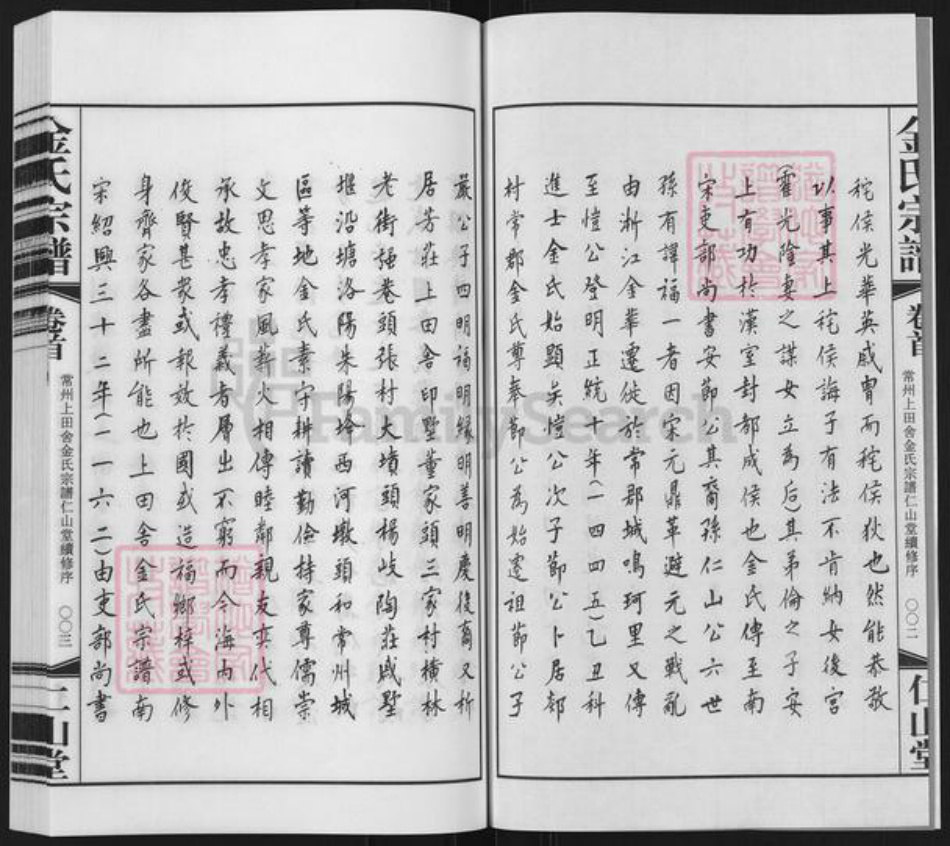 金氏宗譜
卷首
常州上田舍金氏宗譜仁山堂續修序
〇〇二
仁山堂
秺侯光華英戚胄而秺侯狄也然能恭敬
以事其上秺侯誨子有法不肯納女後宮
(霍光陰妻之謀女立為后)其弟倫之子安
上有功於漢室封都成侯也金氏傳至南
宋吏部尚書安節公其裔孫仁山公六世
孫有諱福一者因宋元鼎革避元之戰亂
由浙江金華遷徙於常郡城鳴珂里又傳
至愷公登明正統十年(一四四五)乙丑科
進士金氏始顯矣愷公次子節公卜居鄒
村常郡金氏尊奉節公為始遷祖節公子
嚴公子四明福明緣明善明慶後裔又析
居芳莊上田舍印墅董家頭三家村橫林
老街强巷頭張村大墳頭楊岐陶莊戚墅
堰沿塘洛陽朱陽埝西河墩頭和常州城
區等地金氏素守耕讀勤儉持家尊儒崇
文思孝家風薪火相傳睦鄰親友奕代相
承故忠孝禮義者層出不窮而今海內外
俊賢甚衆或報效於國或造福鄉梓或修
身齊家各盡所能也上田舍金氏宗譜南
宋紹興三十二年(一一六二)由吏部尚書
金氏宗譜
卷首
常州上田舍金氏宗譜仁山堂續修序
〇〇三
仁山堂
FamilySearch